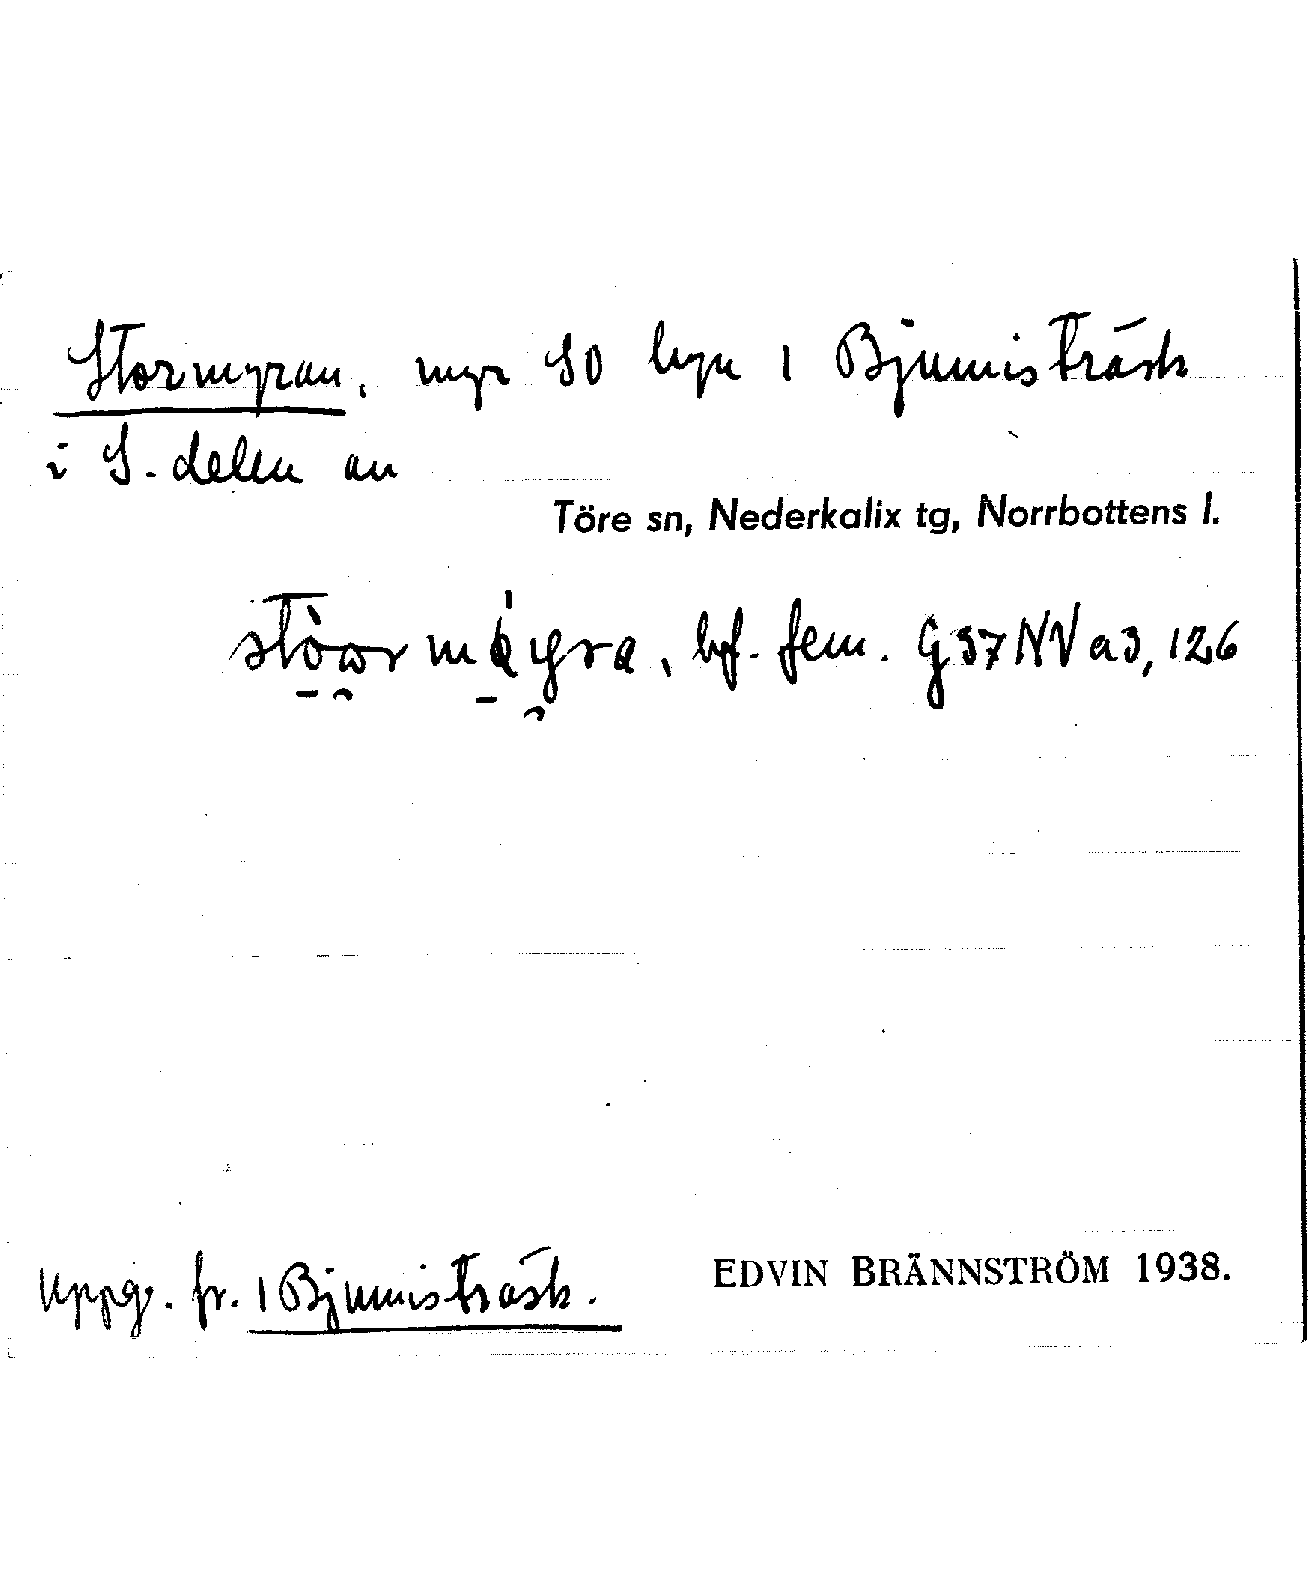 Stormyran, myr SO byn 1 Bjumisträsk
i S. delen av
Töre sn, Nederkalix tg, Norrbottens l.
bf. fem. G37NVa3, 126
Uppg. fr. 1 Bjumisträsk.
EDVIN BRÄNNSTRÖM 1938.